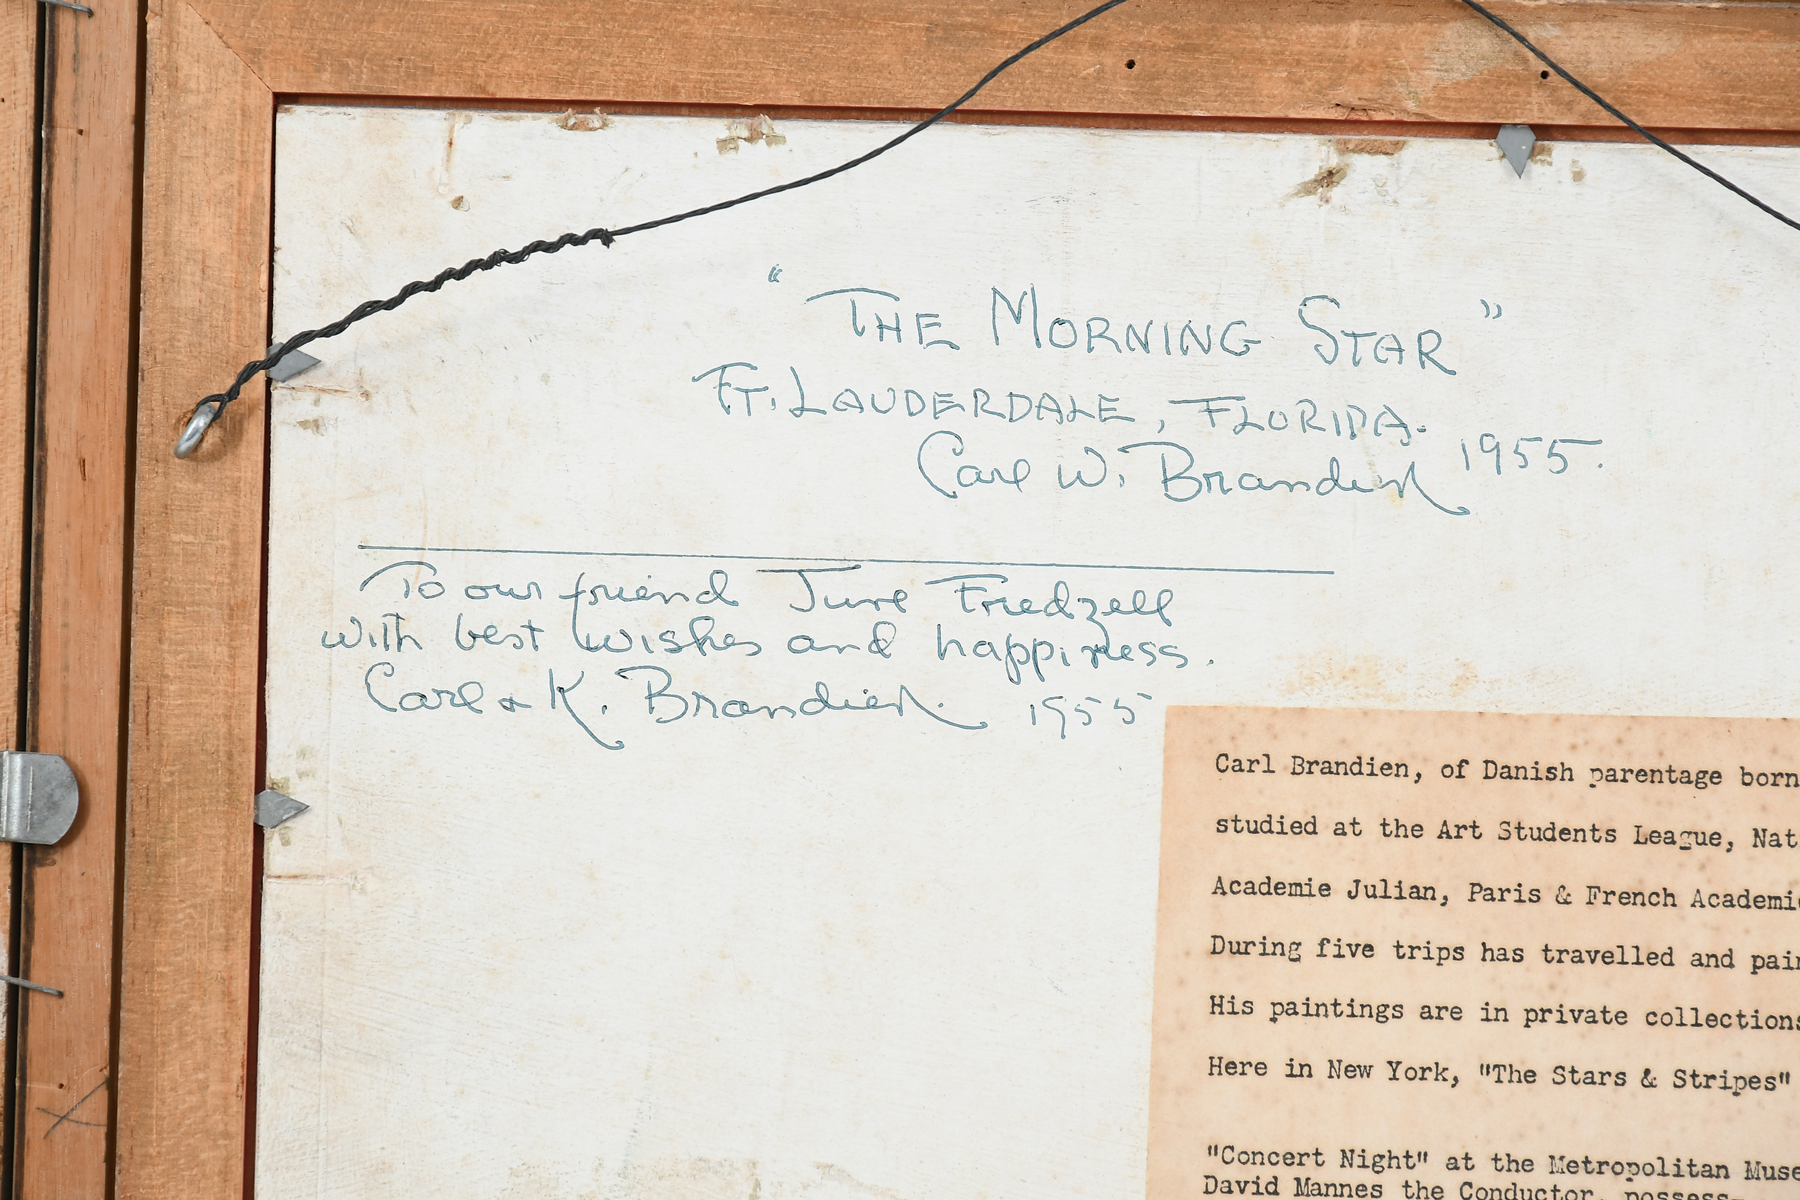 "THE MORNING STAR"
FT. LAUDERDALE, FLORIDA.
Carl W. Brandien 1955.
To our friend June Fredzell
with best wishes and happiness.
Carl & K. Brandien. 1955
Carl Brandien, of Danish parentage born
studied at the Art Students League, Nat
Academie Julian, Paris & French Academi
During five trips has travelled and pain
His paintings are in private collections
Here in New York, "The Stars & Stripes"
"Concert Night" at the Metropolitan Muse
David Mannes the Conductor, possess